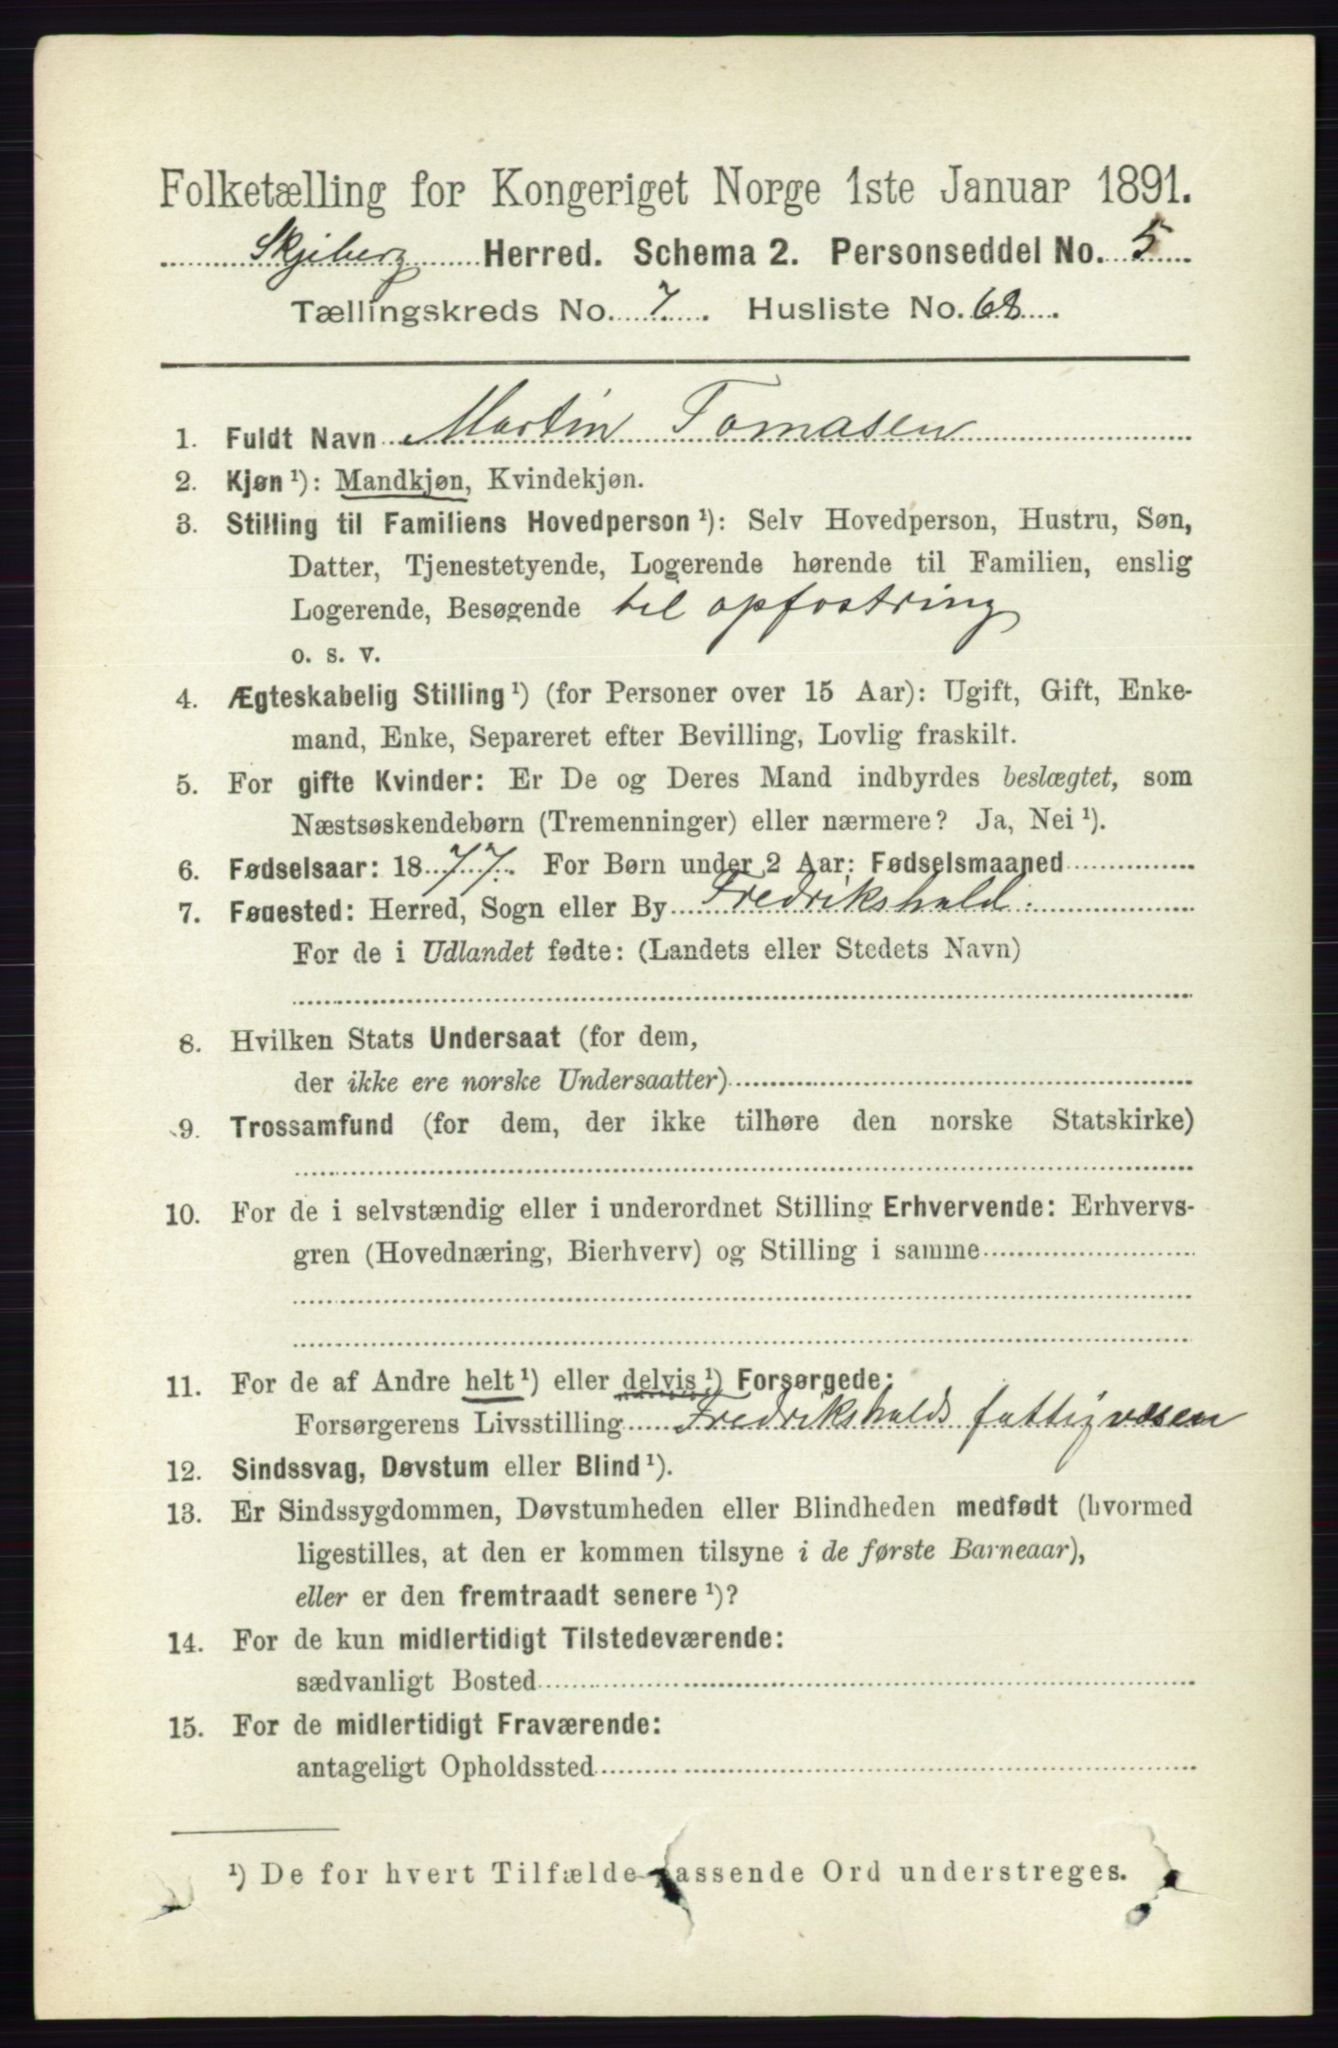 Folketælling for Kongeriget Norge 1ste Januar 1891.
Skjeberg Herred. Schema 2. Personseddel No. 5
Tællingskreds No. 7. Husliste No. 68.
1. Fuldt Navn Martin Tomasen
2. Kjøn ¹): Mandkjøn, Kvindekjøn.
3. Stilling til Familiens Hovedperson ¹): Selv Hovedperson, Hustru, Søn,
Datter, Tjenestetyende, Logerende hørende til Familien, enslig
Logerende, Besøgende til opfostring
o. s. v.
4. Ægteskabelig Stilling ¹) (for Personer over 15 Aar): Ugift, Gift, Enke-
mand, Enke, Separeret efter Bevilling, Lovlig fraskilt.
5. For gifte Kvinder: Er De og Deres Mand indbyrdes beslægtet, som
Næstsøskendebørn (Tremenninger) eller nærmere? Ja, Nei ¹).
6. Fødselsaar: 1877. For Børn under 2 Aar: Fødselsmaaned
7. Fødested: Herred, Sogn eller By Fredrikshald.
For de i Udlandet fødte: (Landets eller Stedets Navn)
8. Hvilken Stats Undersaat (for dem,
der ikke ere norske Undersaatter)
9. Trossamfund (for dem, der ikke tilhøre den norske Statskirke)
10. For de i selvstændig eller i underordnet Stilling Erhvervende: Erhvervs-
gren (Hovednæring, Bierhverv) og Stilling i samme
11. For de af Andre helt ¹) eller delvis ¹) Forsørgede:
Forsørgerens Livsstilling Fredrikshalds fattigvæsen
12. Sindssvag, Døvstum eller Blind ¹).
13. Er Sindssygdommen, Døvstumheden eller Blindheden medfødt (hvormed
ligestilles, at den er kommen tilsyne i de første Barneaar),
eller er den fremtraadt senere ¹)?
14. For de kun midlertidigt Tilstedeværende:
sædvanligt Bosted
15. For de midlertidigt Fraværende:
antageligt Opholdssted
¹) De for hvert Tilfælde passende Ord understreges.